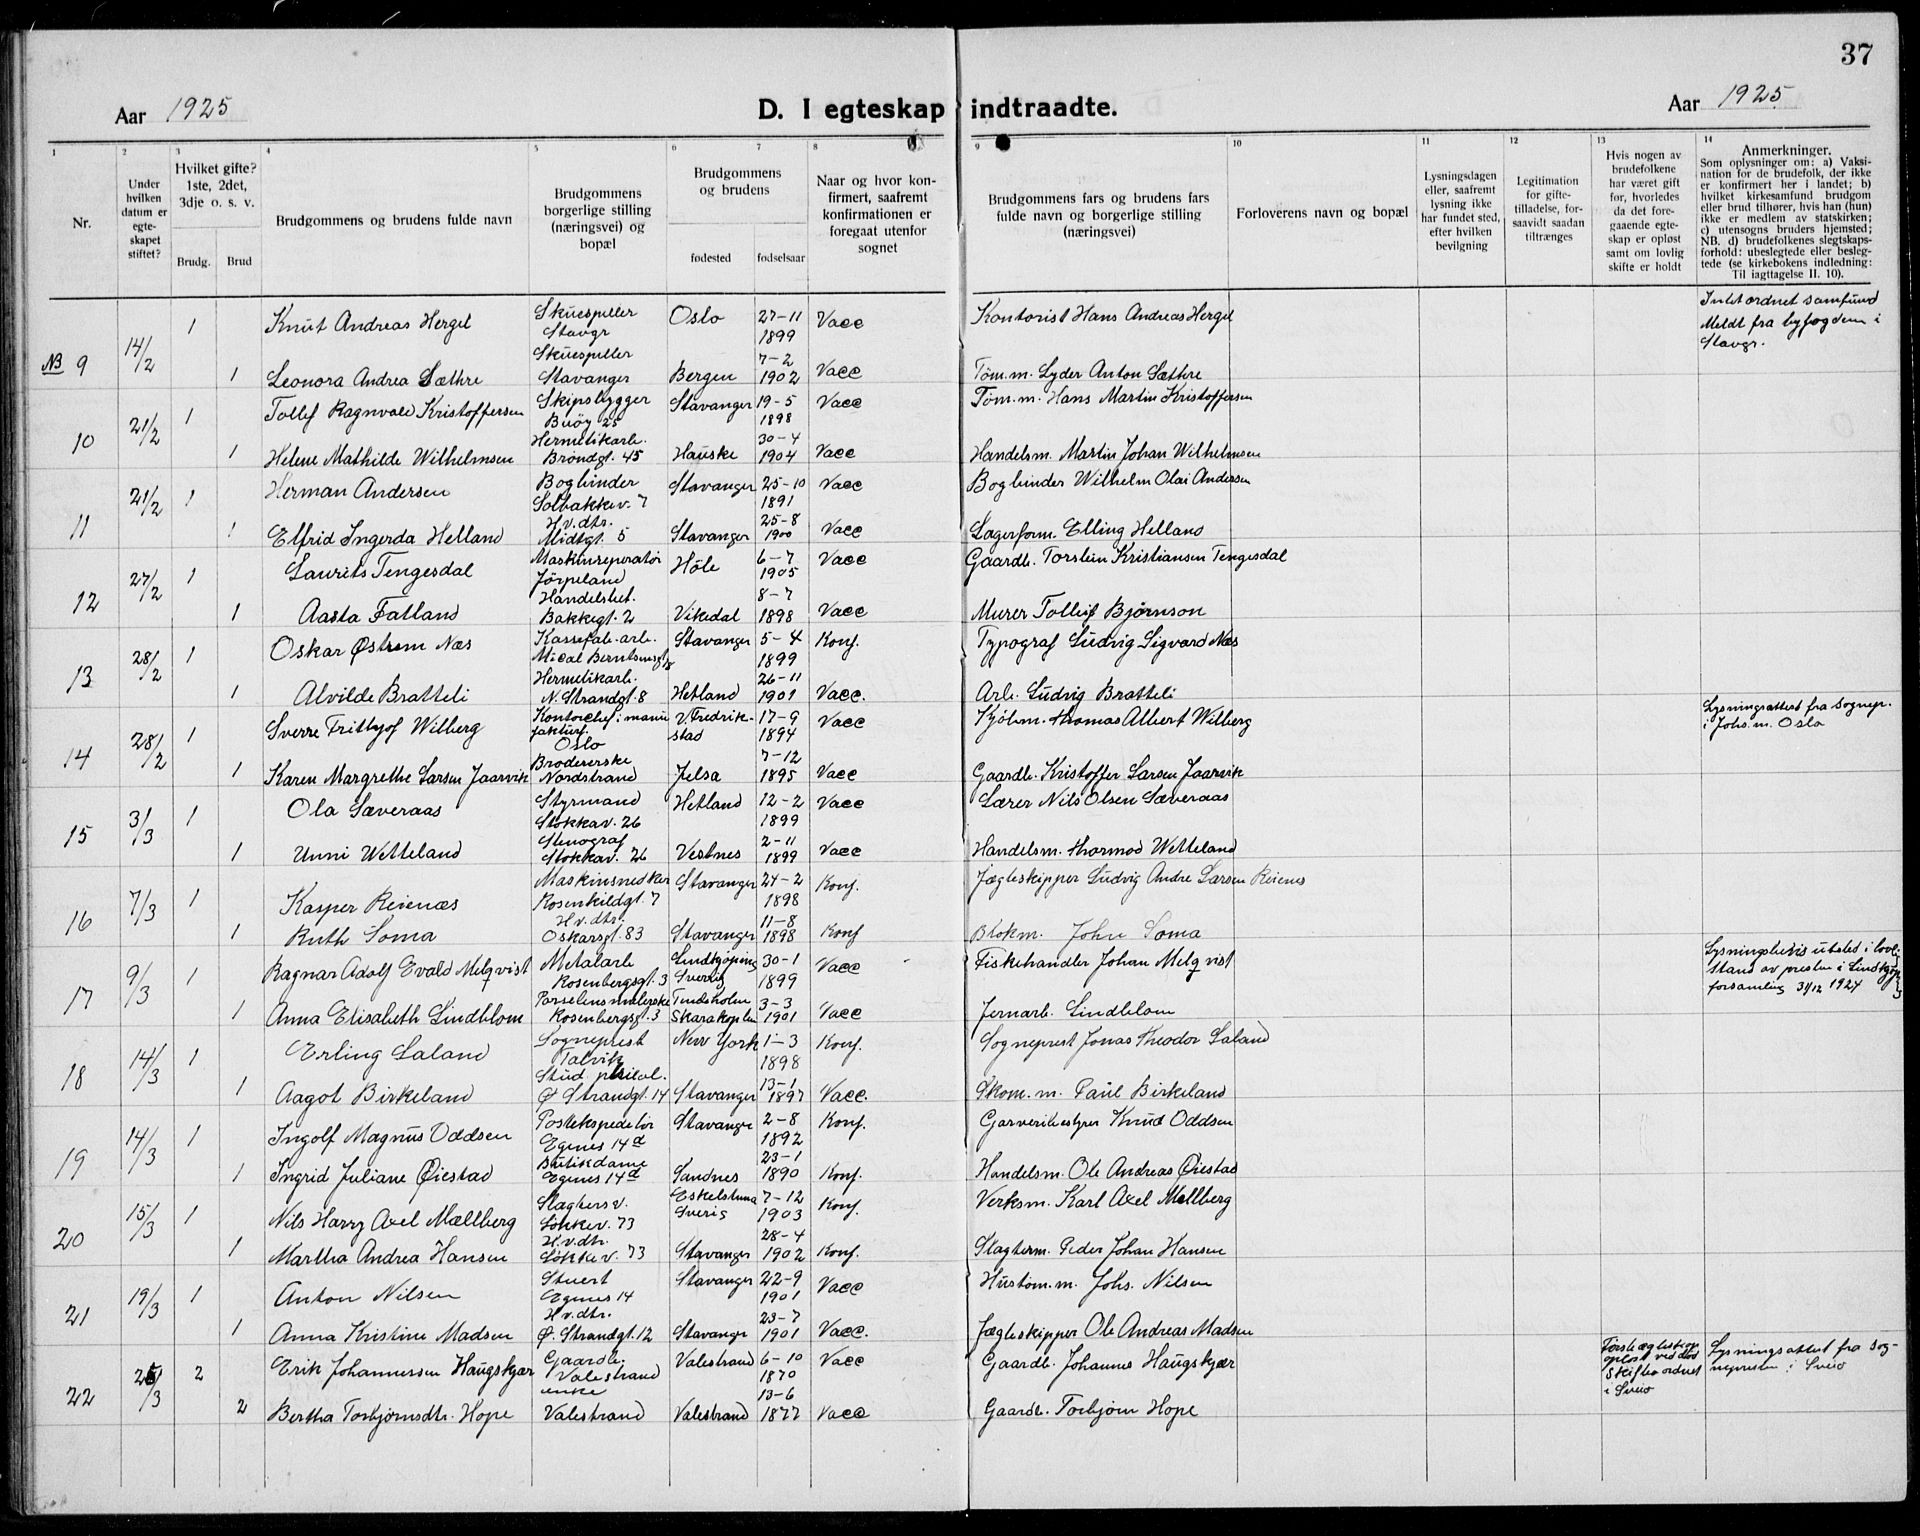 37
Aar 1925
D. I egteskap indtraadte.
Aar 1925
1 2 3 4 5 6 7 8 9 10 11 12 13 14
Nr.
Under hvilken datum er egte-skapet stiftet?
Hvilket gifte? 1ste, 2det, 3dje o. s. v.
Brudg. Brud
Brudgommens og brudens fulde navn
Brudgommens borgerlige stilling (næringsvei) og bopæl
Brudgommens og brudens
fødested fødselsaar
Naar og hvor kon-firmert, saafremt konfirmationen er foregaat utenfor sognet
Brudgommens fars og brudens fars fulde navn og borgerlige stilling (næringsvei)
Forloverens navn og bopæl
Lysningsdagen eller, saafremt lysning ikke har fundet sted, efter hvilken bevilgning
Legitimation for gifte-tilladelse, for-saavidt saadan tiltrænges
Hvis nogen av brudefolkene har været gift før, hvorledes da det fore-gaaende egte-skap er opløst samt om lovlig skifte er holdt
Anmerkninger.
Som oplysninger om: a) Vaksi-nation for de brudefolk, der ikke er konfirmert her i landet; b) hvilket kirkesamfund brudgom eller brud tilhører, hvis han (hun) ikke er medlem av statskirken; c) utensogns bruders hjemsted; NB. d) brudefolkenes slegtskaps-forhold: ubeslegtede eller besleg-tede (se kirkebokens indledning: Til iagttagelse II. 10).
NB 9 14/2 1 Knut Andreas Hergel Skuespiller Stavgr Oslo 27-11 1899 Vacc Kontorist Hans Andreas Hergel Intet ordnet samfund Meldt fra byfogden i Stavgr.
1 Leonora Andrea Sæthre Skuespiller Stavanger Bergen 7-2 1902 Vacc Tøm.m. Lyder Anton Sæthre
10 21/2 1 Tollef Ragnvald Kristoffersen Skipsbygger Buøy 25 Stavanger 19-5 1898 Vacc Tøm.m. Hans Martin Kristoffersen
1 Helene Mathilde Wilhelmsen Hermetikarb. Brøndgt. 45 Hauske 30-4 1904 Vacc Handelsm. Martin Johan Wilhelmsen
11 21/2 1 Herman Andersen Bogbinder Solbakkev. 7 Stavanger 25-10 1891 Vacc Bogbinder Wilhelm Olai Andersen
1 Elfrid Ingerda Helland H.v.dtr. Midtgt. 5 Stavanger 25-8 1900 Vacc Lagerform. Elling Helland
12 27/2 1 Laurits Tengesdal Maskinreperatør Jørpeland Høle 6-7 1905 Vacc Gaardb. Torstein Kristiansen Tengesdal
1 Aasta Fatland Handelsbet. Bakkegt. 2 Vikedal 8-7 1898 Vacc Murer Tolleif Bjørnson
13 28/2 1 Oskar Østrem Næs Kassefab.arb. Mical Berntsensgt 8 Stavanger 5-4 1899 Konf. Typograf Ludvig Sigvard Næs
1 Alvilde Bratteli Hermetikarb. N. Strandgt. 8 Hetland 26-11 1901 Vacc. Arb. Ludvig Bratteli
14 28/2 1 Sverre Frithjof Wilberg Kontorchef i manufaktur. Oslo V. Fredrikstad 17-9 1894 Vacc Kjøbm. Thomas Albert Wilberg Lysningsattest fra sognepr. i Johs. m. Oslo
1 Karen Margrethe Larsen Jaarvik Brodererske Nordstrand Jelsa 7-12 1895 Vacc Gaardb. Kristoffer Larsen Jaarvik
15 3/3 1 Ola Sæveraas Styrmand Stokkav. 26 Hetland 12-2 1899 Vacc Lærer Nils Olsen Sæveraas
1 Unni Wetteland Stenograf Stokkav. 26 Vestnes 2-11 1899 Vacc Handelsm. Thormod Wetteland
16 7/3 1 Kasper Reienæs Maskinsnedker Rosenkildgt. 7 Stavanger 24-2 1898 Konf. Jægteskipper Ludvig Andre Larsen Reienes
1 Ruth Soma H.v.dtr. Oskarsgt. 83 Stavanger 11-8 1898 Konf Blokm. John Soma
17 9/3 1 Ragnar Adolf Evald Melqvist Metalarb Rosenbergsgt. 3 Lindkøping Sverig 30-1 1899 Vacc Fiskehandler Johan Melqvist Lysningsbevis utsted i av presten i Lindkjøp forsamling 31/12 1924
1 Anna Elisabeth Lindblom Porselensmalerske Rosenbergsgt. 3 3-3 1901 Vacc Jernarb. Lindblom
18 14/3 1 Erling Laland Sogneprest Talvik New York 1-3 1898 Konf. Sogneprest Jonas Theodor Laland
1 Aagot Birkeland Stud philol. Ø Strandgt. 14 Stavanger 13-1 1897 Vacc. Skom. m. Paul Birkeland
19 14/3 1 Ingolf Magnus Oddsen Postekspeditør Egenes 14d Stavanger 2-8 1892 Konf. Garveribestyrer Knud Oddsen
1 Ingrid Juliane Øiestad Butikdame Egenes 14d Sandnes 23-1 1890 Konf. Handelsm. Ole Andreas Øiestad
20 15/3 1 Nils Harry Axel Mællberg Slaghersv. Løkkev. 73 Eskelstuna Sverig 7-12 1903 Konf. Verksm. Karl Axel Mellberg
1 Martha Andrea Hansen H.v.dtr. Løkkev. 73 Stavanger 28-4 1902 Konf. Slagterm. Peder Johan Hansen
21 19/3 1 Anton Nilsen Stuert Egenes 14 Stavanger 22-9 1901 Vacc Hustøm.m. Johs. Nilsen
1 Anna Kristine Madsen H.v.dtr. Ø. Strandgt. 12 Stavanger 23-7 1901 Vacc. Jægteskipper Ole Andreas Madsen
22 /3 2 Erik Johannessen Haugskjær Gaardb. Valestrand Valestrand 6-10 1870 Vacc Gaardb. Johannes Haugskjær opløst ved død Skifte ordnet i Sveio Lysningsattest fra sognepresten i Sveio
2 Bertha Torbjørnsdtr. Hope enke Valestrand Valestrand 13-6 1877 Vacc Gaardb. Torbjørn Hope